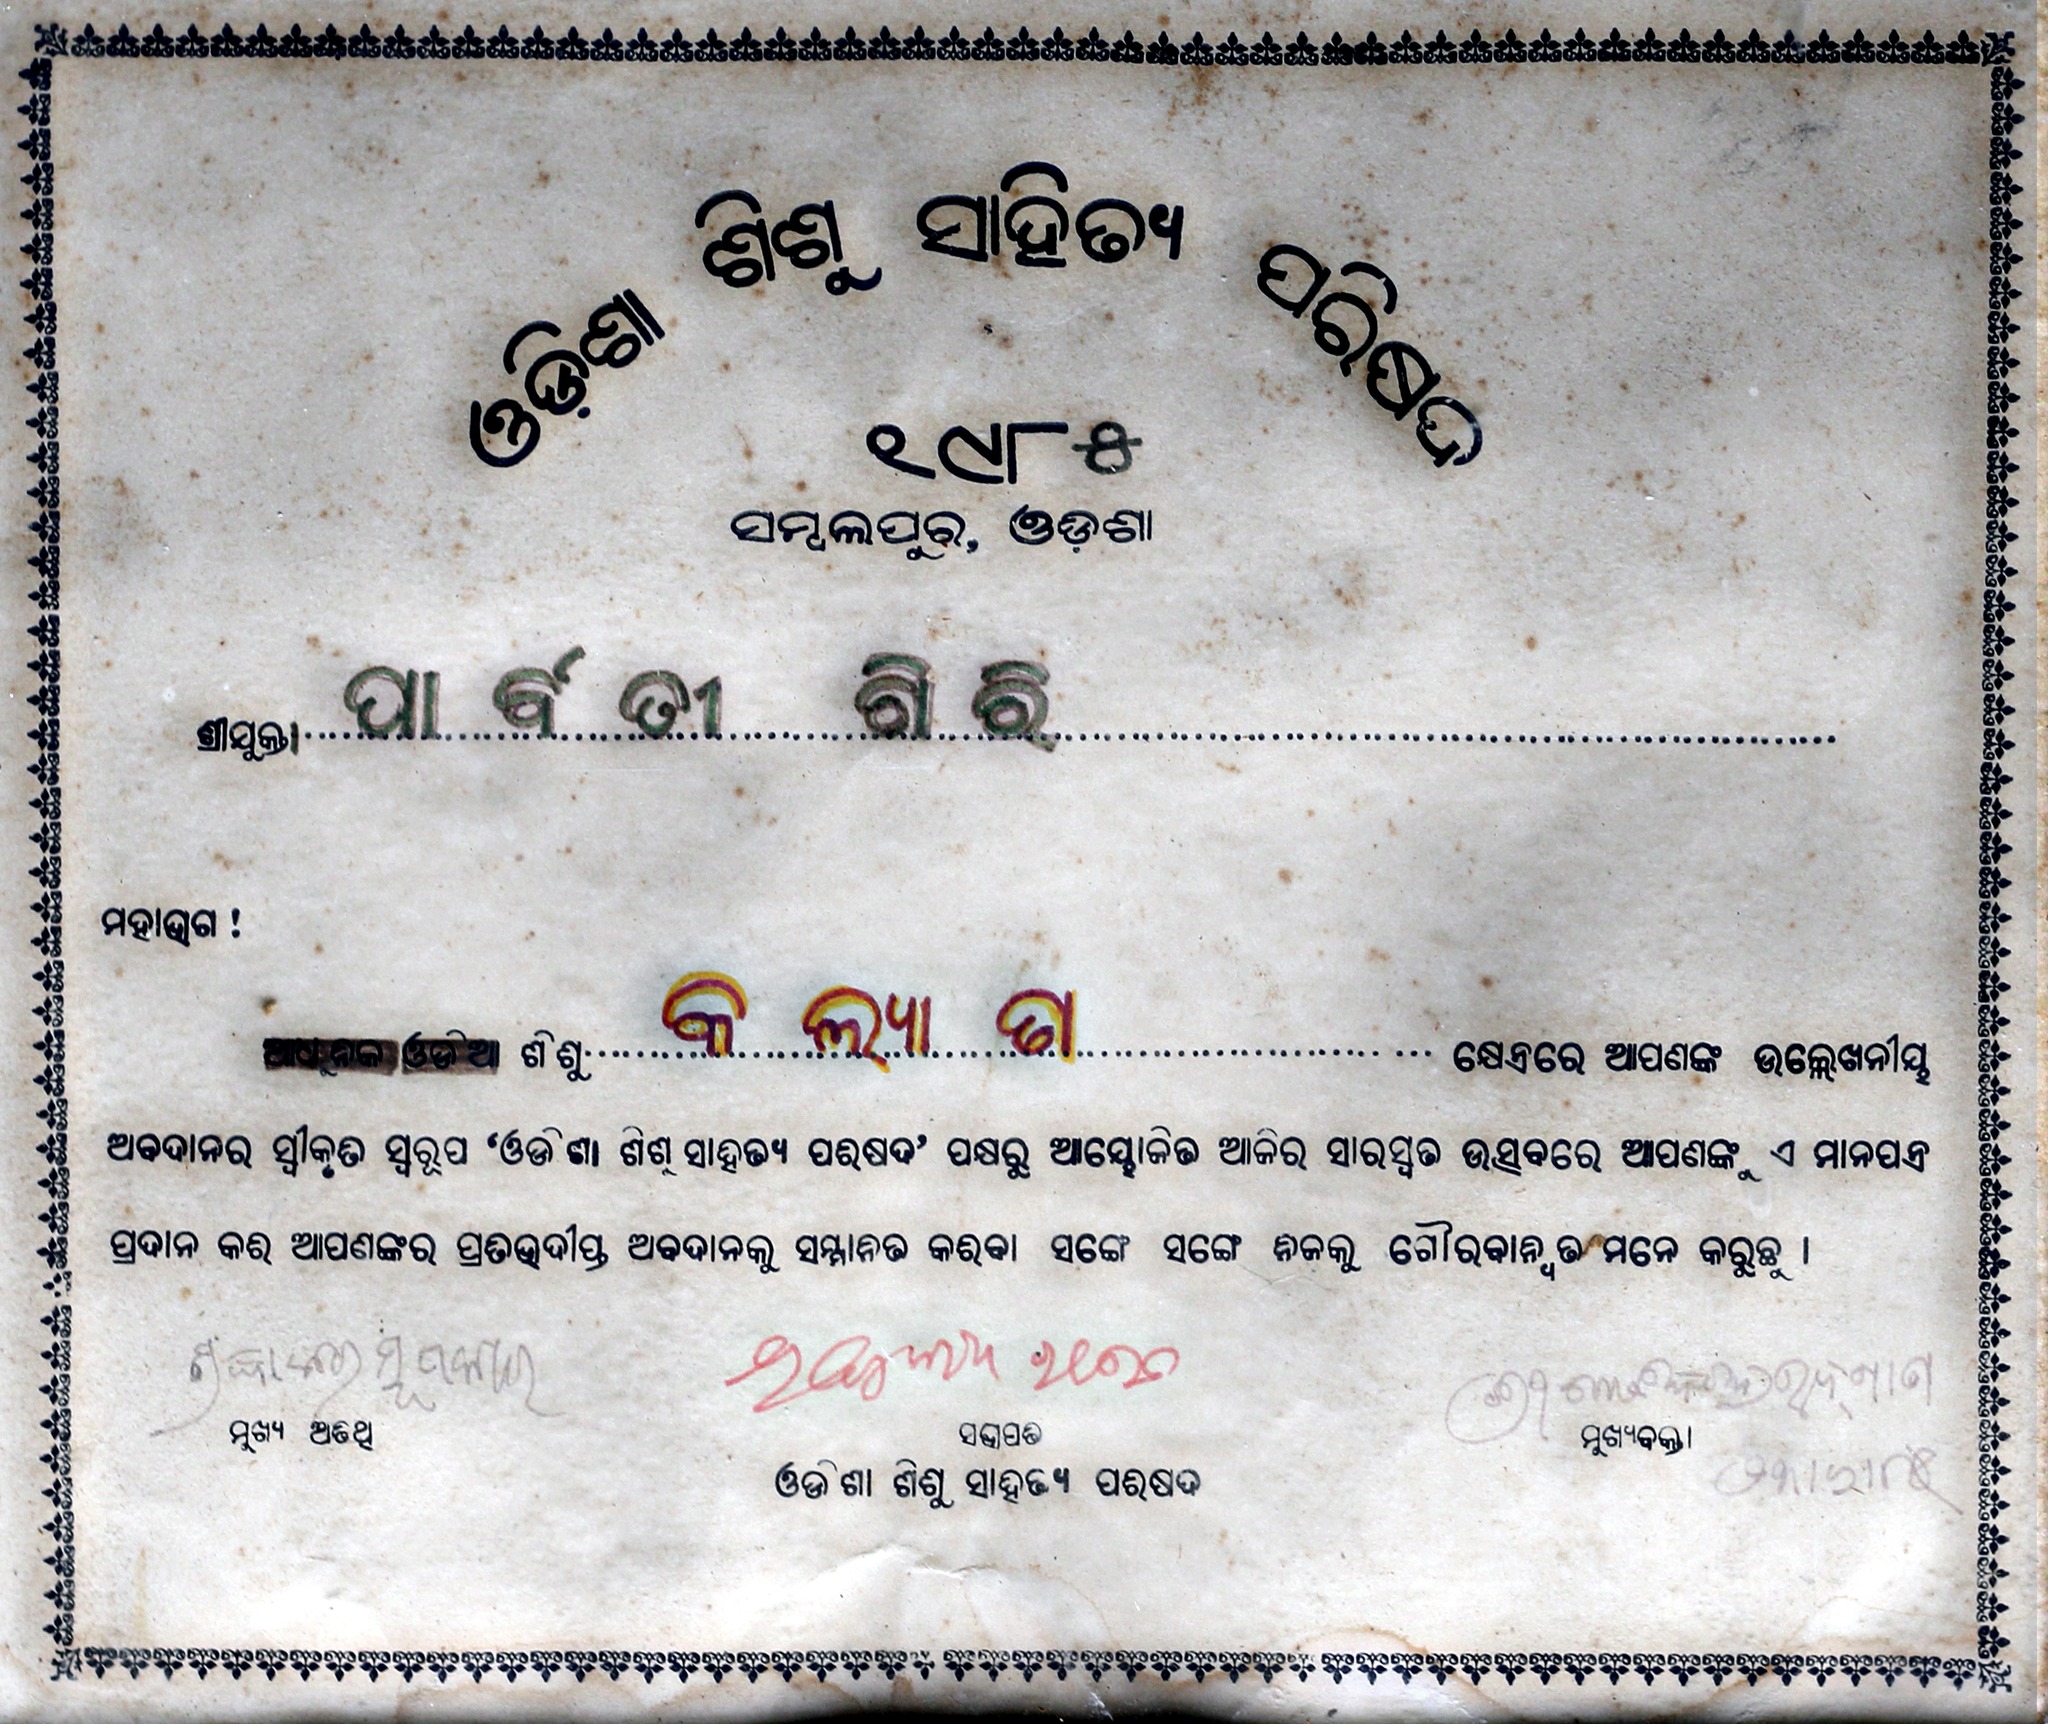 ଓଡ଼ିଶା ଶିଶୁ ସାହିତ୍ୟ ପରିଷଦ
୧୯୮୫
ସମ୍ବଲପୁର, ଓଡ଼ିଶା
ଶ୍ରୀଯୁକ୍ତା ପାର୍ବତୀ ଗିରି
ମହାଭାଗ !
ଆଧୁନିକ ଓଡିଆ ଶିଶୁ କଲ୍ୟାଣ କ୍ଷେତ୍ରରେ ଆପଣଙ୍କ ଉଲ୍ଲେଖନୀୟ
ଅବଦାନର ସ୍ୱୀକୃତ ସ୍ୱରୂପ ‘ଓଡିଶା ଶିଶୁ ସାହିତ୍ୟ ପରିଷଦ’ ପକ୍ଷରୁ ଆୟୋଜିତ ଆଜିର ସାରସ୍ୱତ ଉତ୍ସବରେ ଆପଣଙ୍କୁ ଏ ମାନପତ୍ର
ପ୍ରଦାନ କରି ଆପଣଙ୍କର ପ୍ରତିଭାଦୀପ୍ତ ଅବଦାନକୁ ସମ୍ମାନିତ କରିବା ସଙ୍ଗେ ସଙ୍ଗେ ନିଜକୁ ଗୌରବାନ୍ୱିତ ମନେ କରୁଛୁ ।
ମୁଖ୍ୟ ଅତିଥି
ସଭାପତି
ମୁଖ୍ୟବକ୍ତା
ଓଡିଶା ଶିଶୁ ସାହିତ୍ୟ ପରିଷଦ